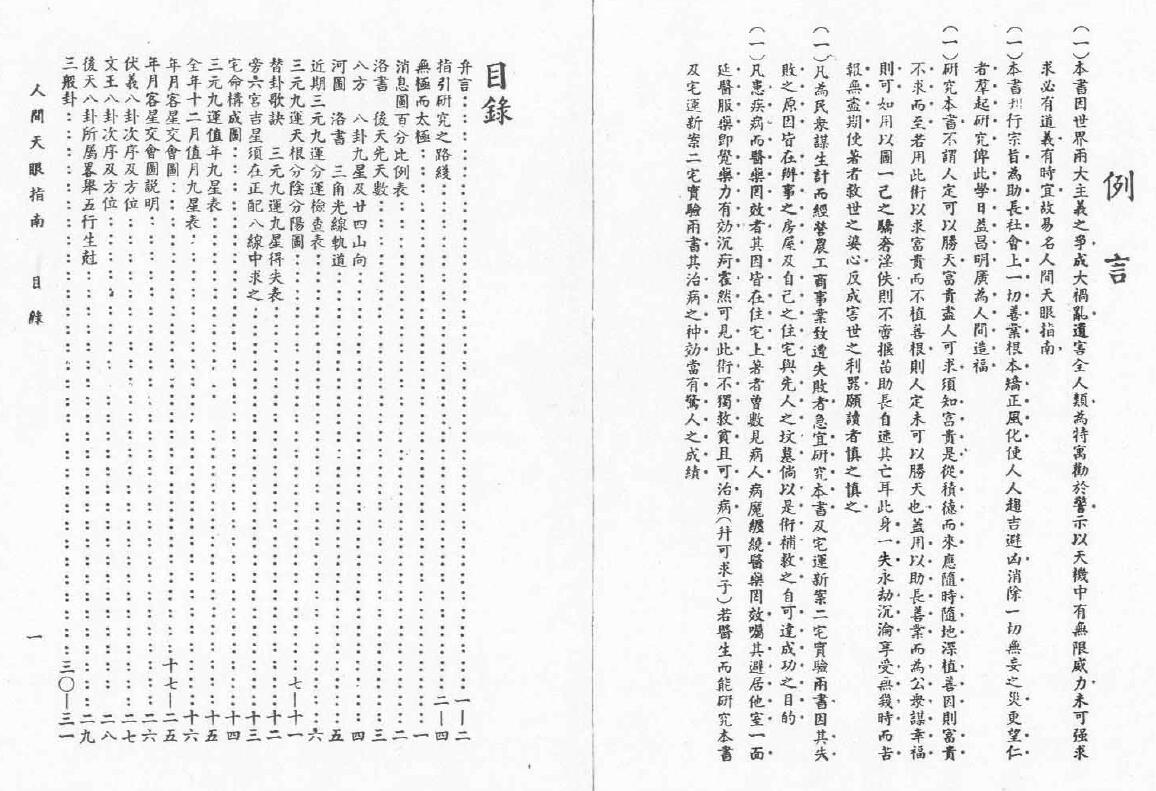 例言
(一)本書因世界兩大主義之爭成大禍亂遺害全人類為特寓勸於警示以天機中有無限威力未可强求
求必有道義有時宜故易名人間天眼指南
(一)本書刋行宗旨為助長社會上一切善業根本矯正風化使人人趨吉避凶消除一切無妄之災更望仁
者羣起研究俾此學日益昌明廣為人間造福
(一)研究本書不謂人定可以勝天富貴盡人可求須知富貴是從積德而來應隨時隨地深植善因則富貴
不求而至若用此術以求富貴而不植善根則人定未可以勝天也蓋用以助長善業而為公衆謀幸福
則可如用以圖一己之驕奢淫佚則不啻揠苗助長自速其亡耳此身一失永劫沉淪享受無幾時而苦
報無盡期使著者救世之婆心反成害世之利器願讀者慎之慎之
(一)凡為民衆謀生計而經營農工商事業致遭失敗者急宜研究本書及宅運新案二宅實驗兩書因其失
敗之原因皆在辦事之房屋及自己之住宅與先人之坟墓倘以是術補救之自可達成功之目的
(一)凡患疾病而醫藥罔效者其因皆在住宅上著者曾數見病人病魔纏繞醫藥罔效囑其避居他室一面
延醫服藥卽覺藥力有効沉疴霍然可見此術不獨救貧且可治病(幷可求子)若醫生而能研究本書
及宅運新案二宅實驗兩書其治病之神効當有驚人之成績
目錄
弁言 一—二
指引研究之路綫 二—四
無極而太極 一
消息圖百分比例表 二
洛書 後天先天數 三
八方 八卦九星及廿四山向 四
河圖 洛書 三角光線軌道 五
近期三元九運分運檢查表 六
三元九運天根分陰分陽圖 七—十一
替卦歌訣 三元九運九星得失表 十二
旁六宮吉星須在正配八線中求之 十三
宅命構成圖 十四
三元九運值年九星表 十五
全年十二月值月九星表 十六
年月客星交會圖 十七—二五
年月客星交會圖說明 二六
伏義八卦次序及方位 二七
文王八卦次序及方位 二八
後天八卦所屬畧舉五行生尅 二九
三般卦 三〇—三一
人間天眼指南 目錄 一